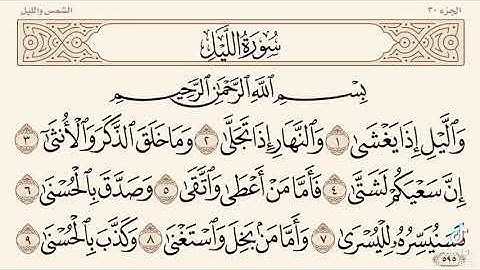 الشمس والليل
الجزء ٣٠
سُورَةُ اللَّيْلِ
بِسْمِ اللَّهِ الرَّحْمَٰنِ الرَّحِيمِ
وَاللَّيْلِ إِذَا يَغْشَىٰ ١ وَالنَّهَارِ إِذَا تَجَلَّىٰ ٢ وَمَا خَلَقَ الذَّكَرَ وَالْأُنثَىٰ ٣
إِنَّ سَعْيَكُمْ لَشَتَّىٰ ٤ فَأَمَّا مَنْ أَعْطَىٰ وَاتَّقَىٰ ٥ وَصَدَّقَ بِالْحُسْنَىٰ ٦
فَسَنُيَسِّرُهُ لِلْيُسْرَىٰ ٧ وَأَمَّا مَن بَخِلَ وَاسْتَغْنَىٰ ٨ وَكَذَّبَ بِالْحُسْنَىٰ ٩
٥٩٥